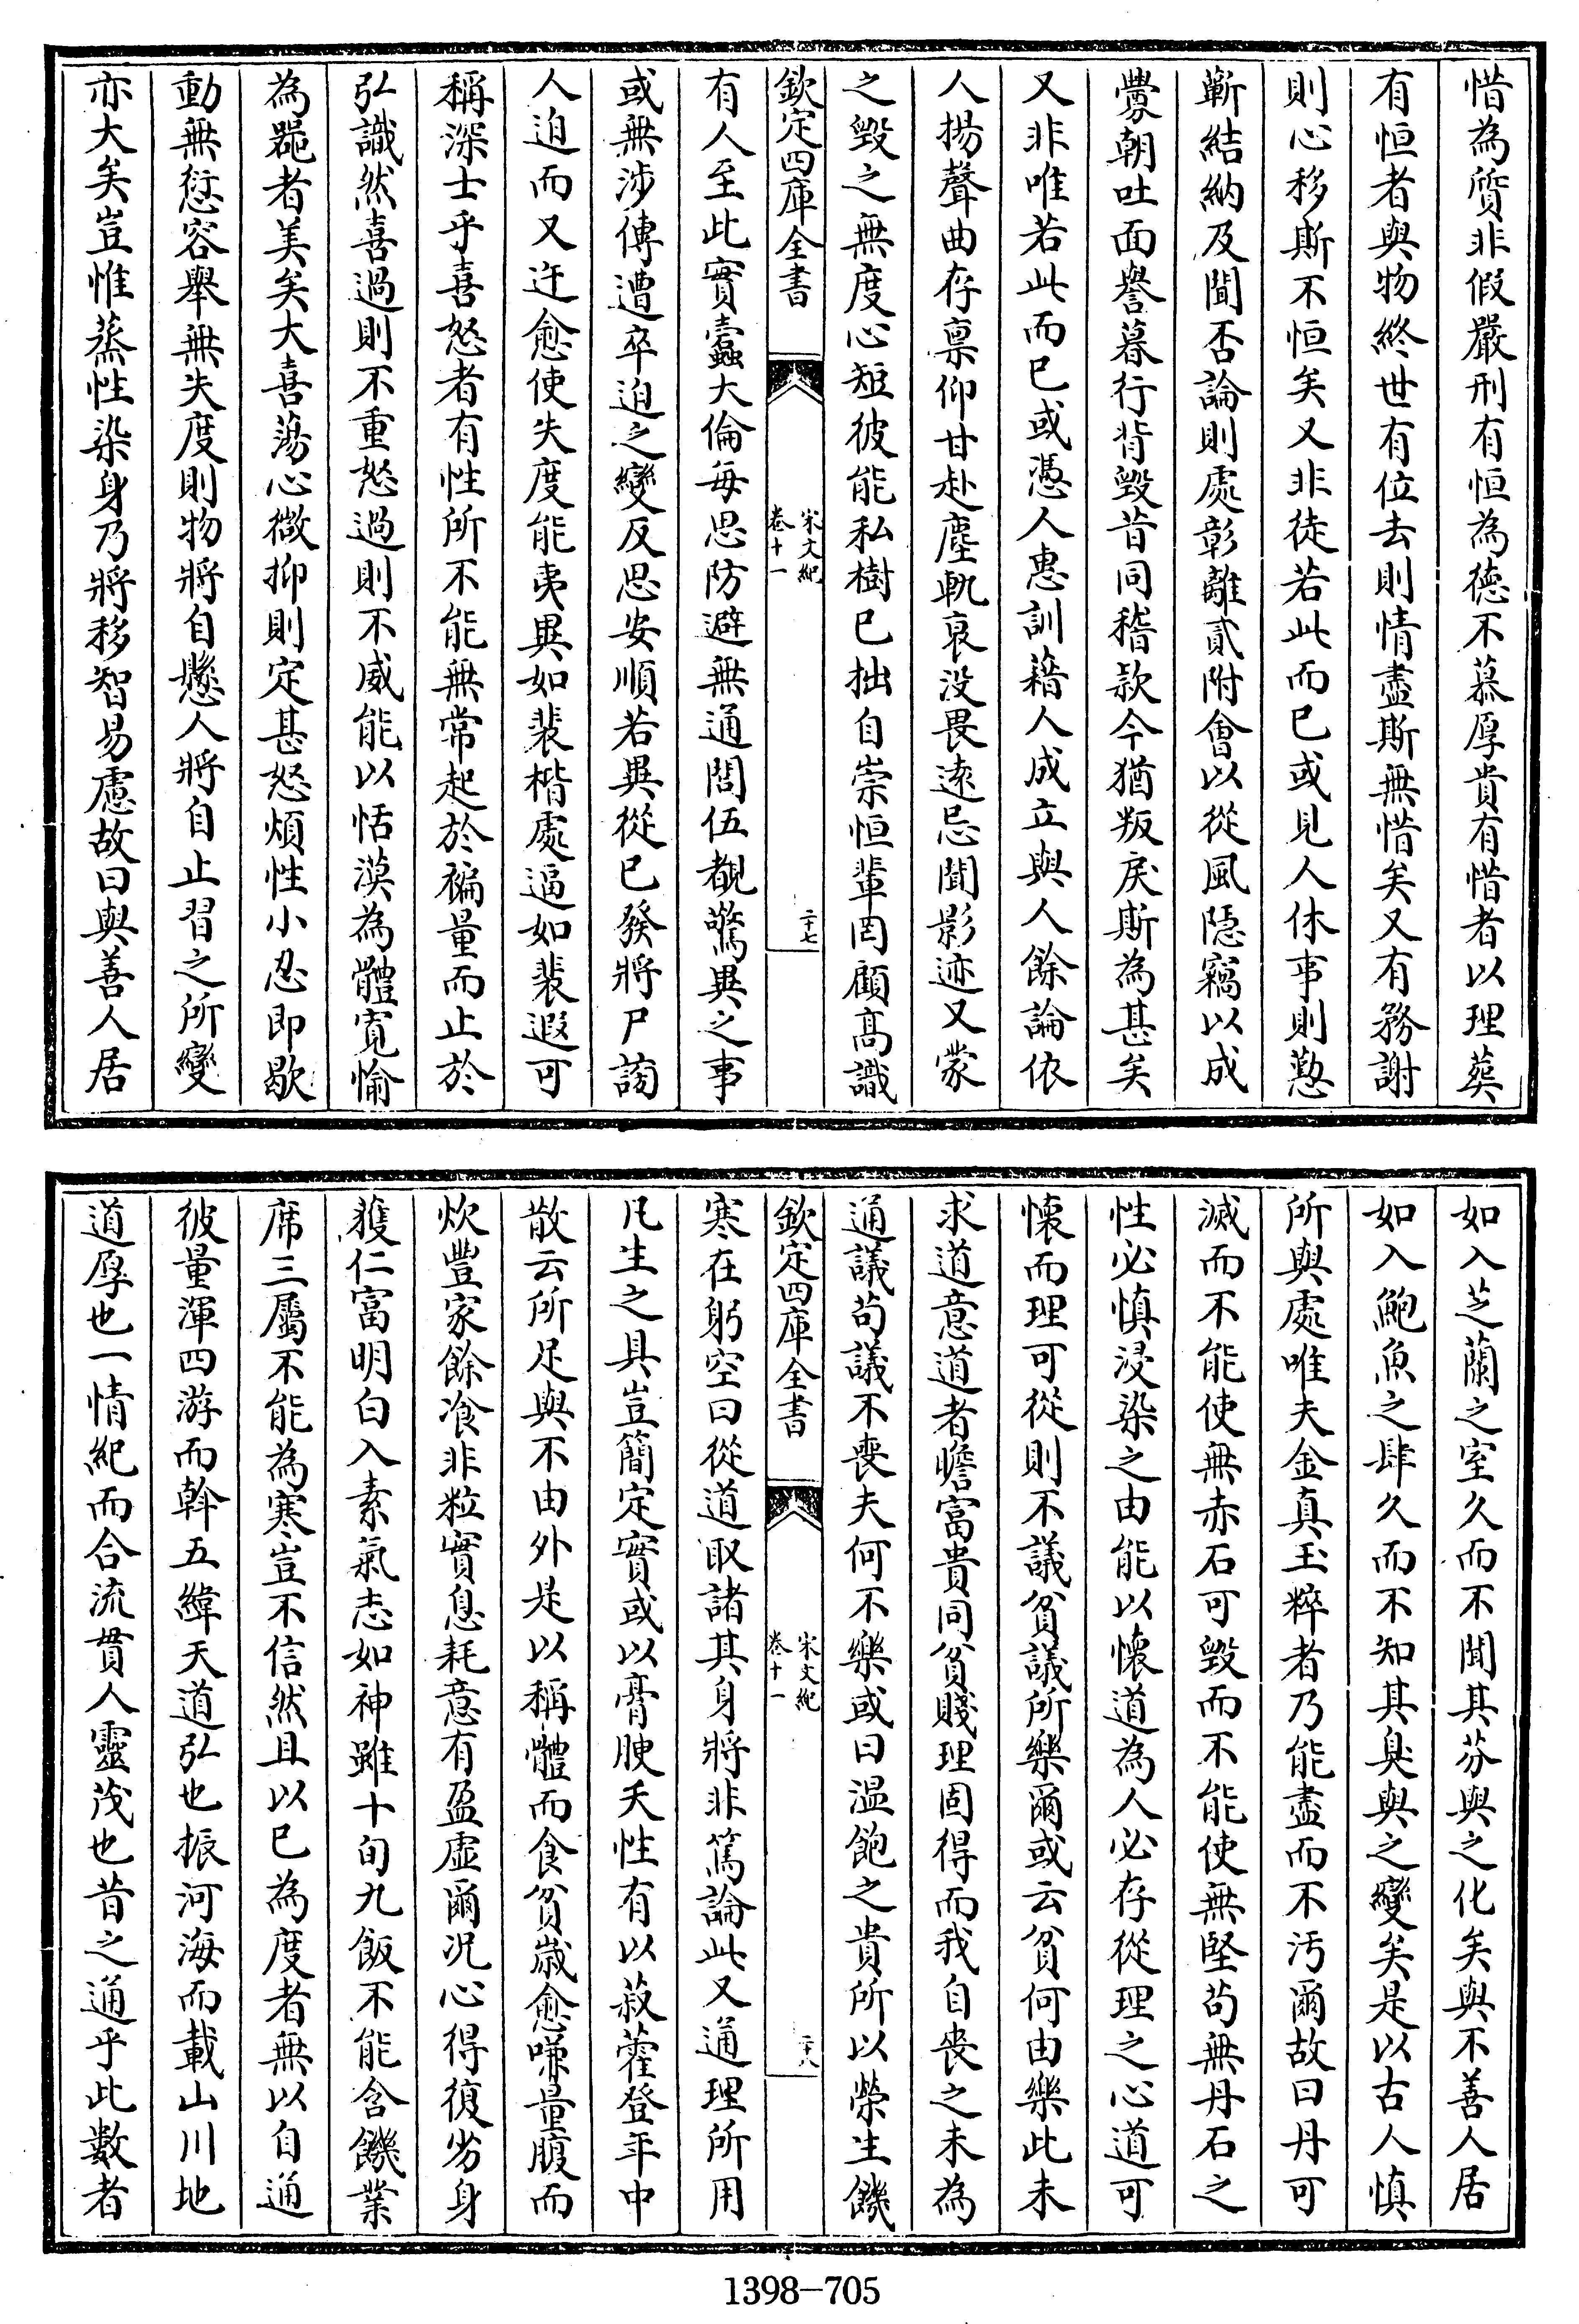 惜為質非假嚴刑有恒為徳不慕厚貴有惜者以理葬
有恒者與物終世有位去則情盡斯無惜矣又有務謝
則心移斯不恒矣又非徒若此而已或見人休事則懃
蘄結納及聞否論則處彰離貳附會以從風隠竊以成
釁朝吐面譽暮行背毁昔同稽款今猶叛戾斯為甚矣
又非唯若此而已或憑人惠訓藉人成立與人餘論依
人揚聲曲存禀仰甘赴塵軌衰没畏逺忌聞影迹又蒙
之毁之無度心短彼能私樹已拙自崇恒輩罔顧髙識
欽定四庫全書
宋文紀
卷十一
二十七
有人至此實蠧大倫每思防避無通閭伍覩驚異之事
或無渉傳遭卒迫之變反思安順若異從已發將尸謗
人迫而又迕愈使失度能夷異如裴楷處逼如裴遐可
稱深士乎喜怒者有性所不能無常起於褊量而止於
弘識然喜過則不重怒過則不威能以恬漠為體寛愉
為噐者美矣大喜蕩心微抑則定甚怒煩性小忍即歇
動無愆容舉無失度則物將自懸人將自止習之所變
亦大矣豈惟蒸性染身乃將移智易慮故曰與善人居
如入芝蘭之室久而不聞其芬與之化矣與不善人居
如入鮑魚之肆久而不知其臭與之變矣是以古人慎
所與處唯夫金真玉粹者乃能盡而不汚爾故曰丹可
滅而不能使無赤石可毁而不能使無堅茍無丹石之
性必慎浸染之由能以懐道為人必存從理之心道可
懐而理可從則不議貧議所樂爾或云貧何由樂此未
求道意道者瞻富貴同貧賤理固得而我自喪之未為
通議茍議不喪夫何不樂或曰温飽之貴所以榮生饑
欽定四庫全書
宋文紀
卷十一
二十八
寒在躬空曰從道取諸其身將非篤論此又通理所用
凡生之具豈簡定實或以膏腴夭性有以菽藿登年中
散云所足與不由外是以稱體而食貧嵗愈嗛量腹而
炊豐家餘飡非粒實息耗意有盈虛爾况心得復劣身
獲仁富明白入素氣志如神雖十旬九飯不能含饑業
席三屬不能為寒豈不信然且以已為度者無以自通
彼量渾四游而斡五緯天道弘也振河海而載山川地
道厚也一情紀而合流貫人靈茂也昔之通乎此數者
1398-705